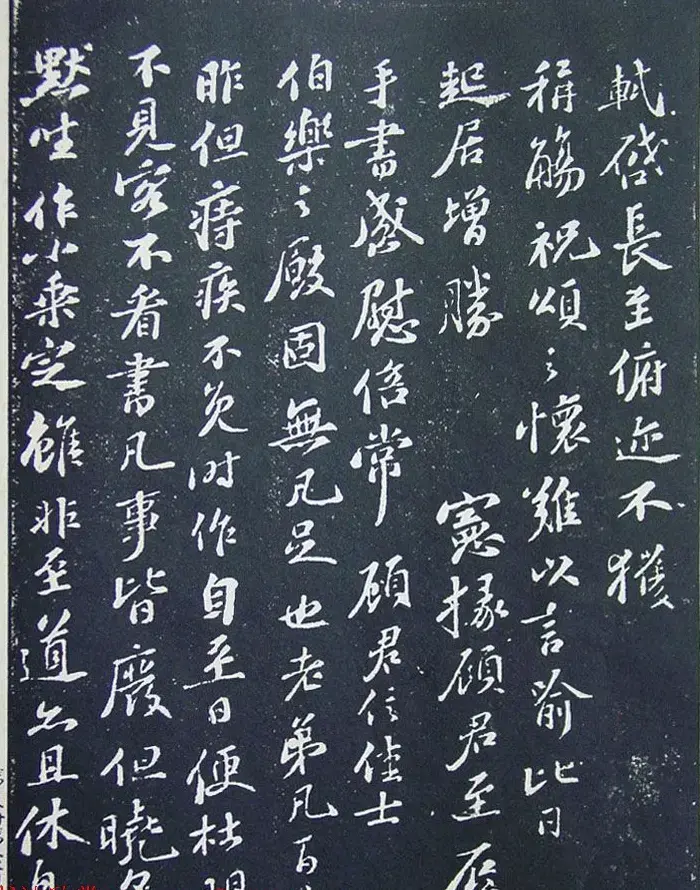 軾啓長至俯迩不獲
稱觴祝頌之懷難以言喻比日
起居增勝 憲掾顧君至辱
手書感慰倍常 顧君信佳士
伯樂之厩固無凡足也老弟凡百
昨但痔疾不免时作自至日便杜
不見客不看書凡事皆廢但曉夕
默坐作小乘定雖非至道亦且休息